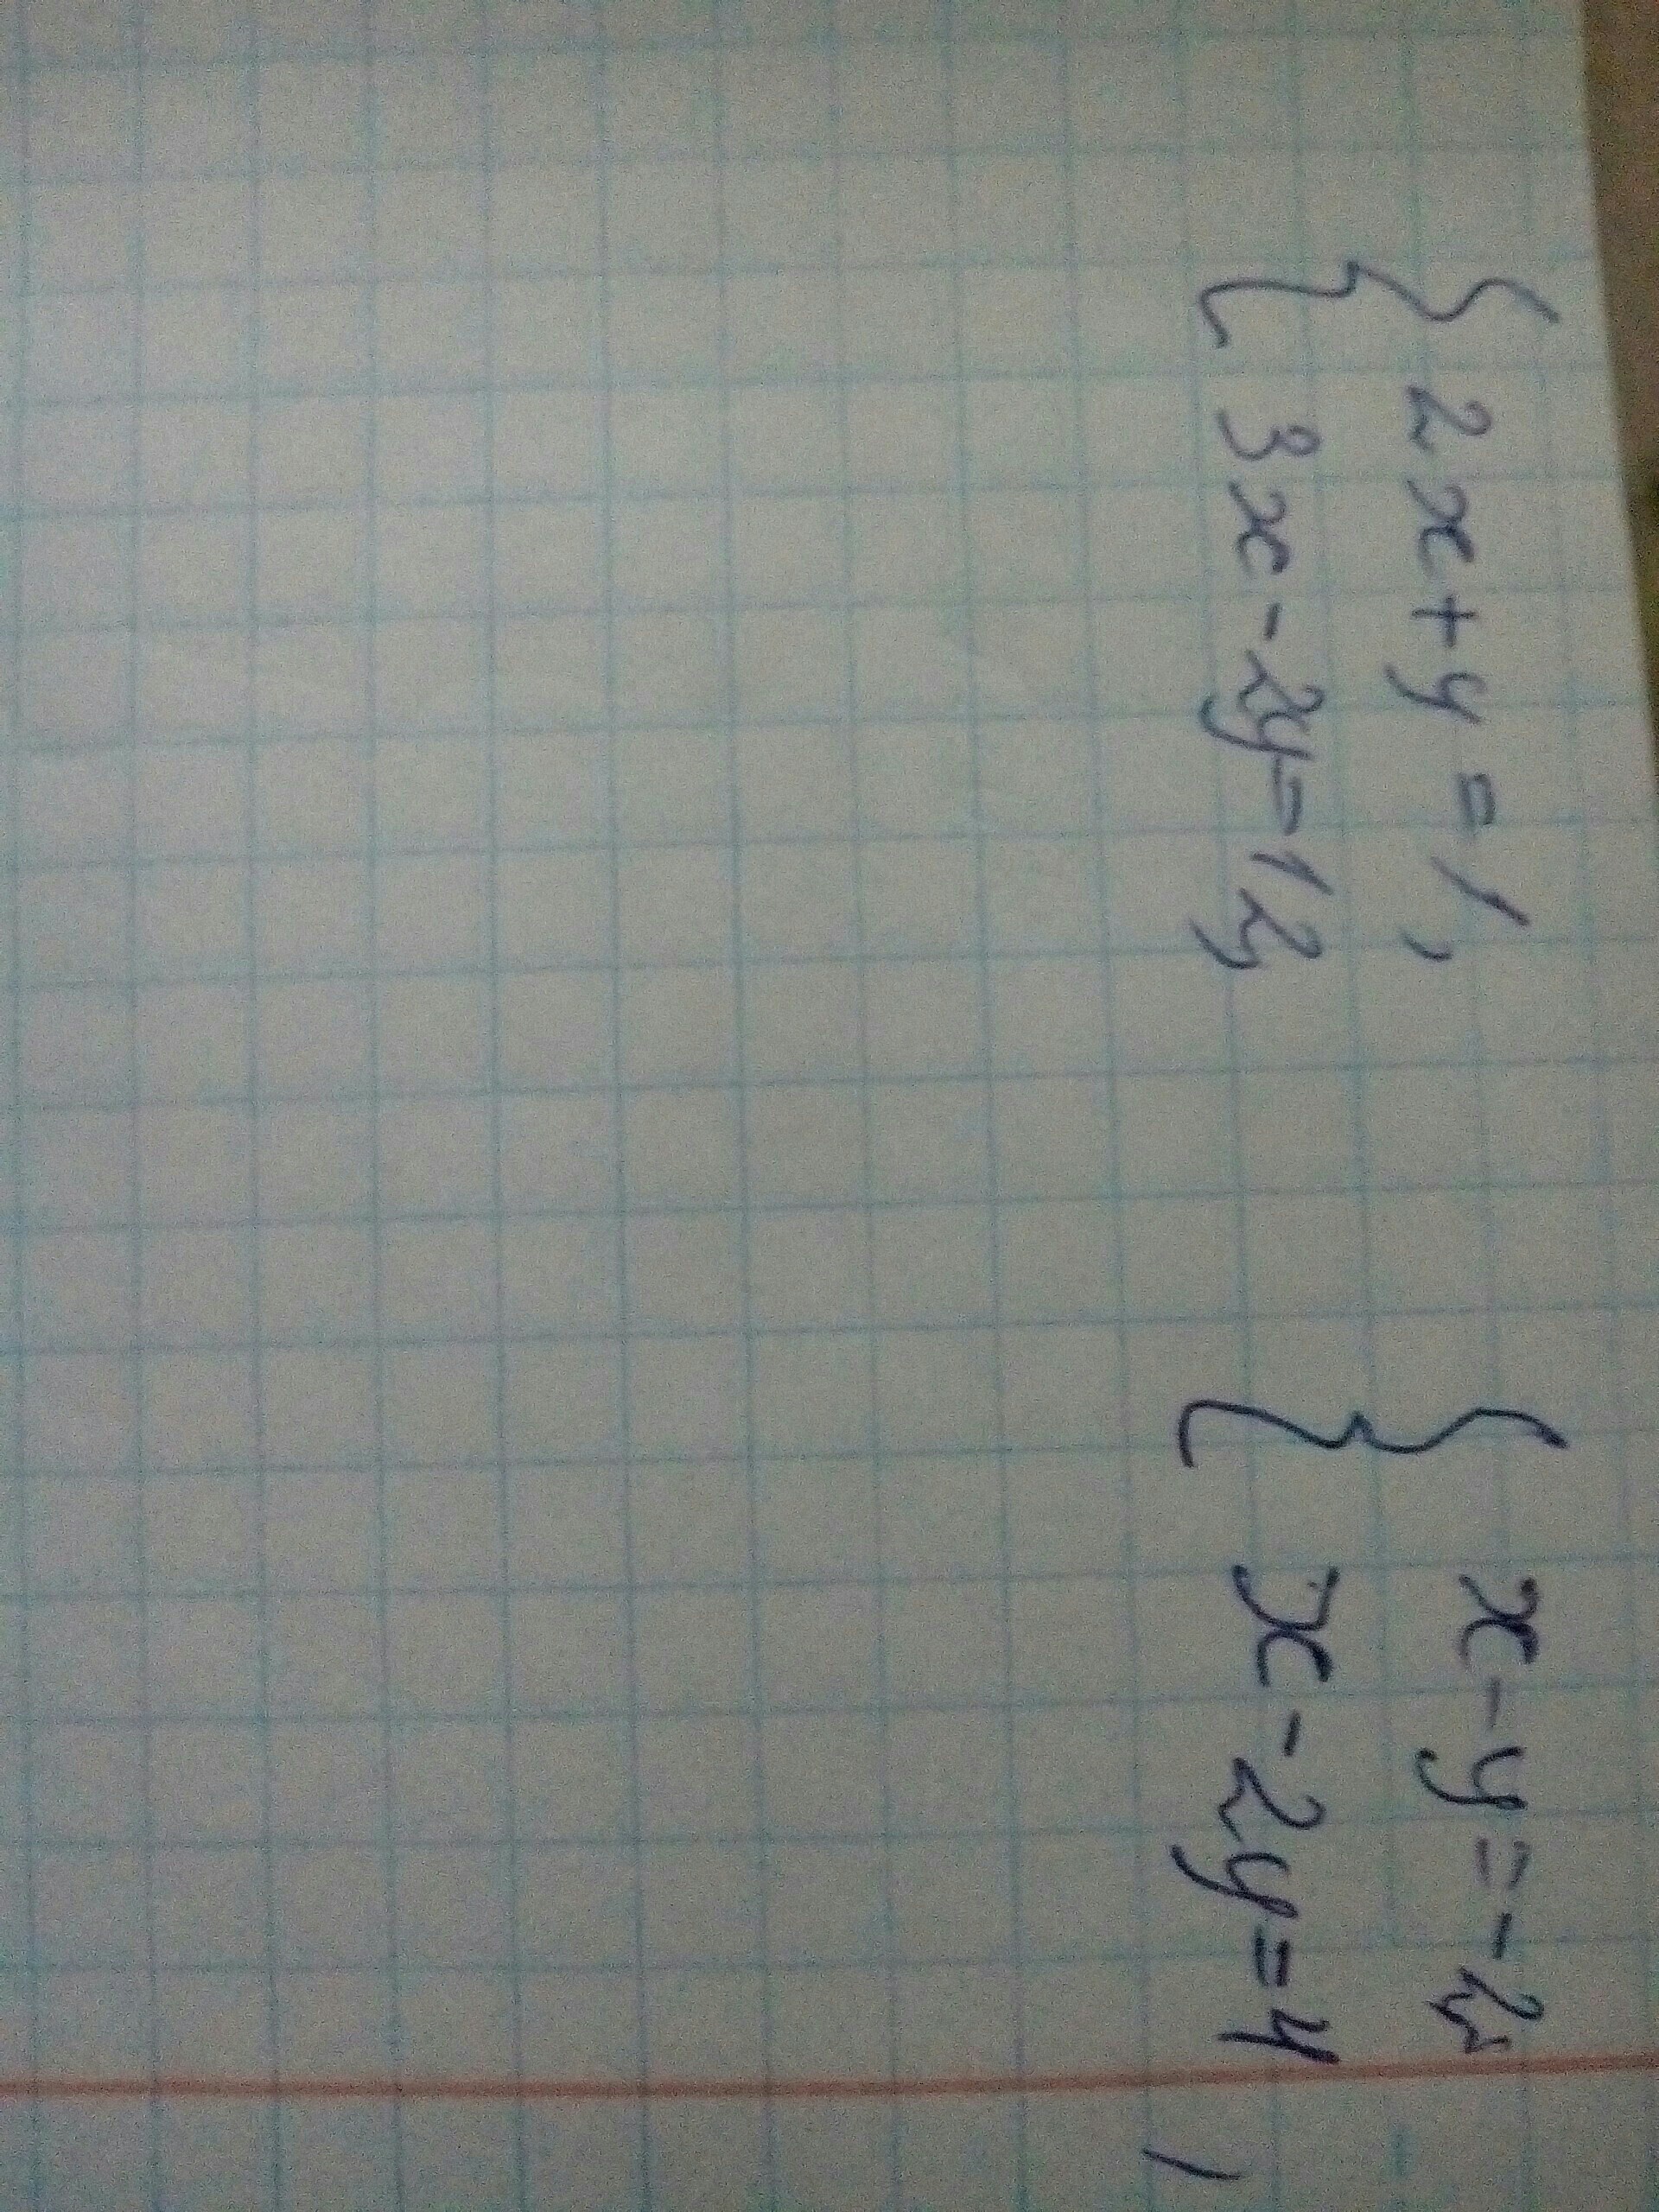 { 2x + y = 1,
3x - 2y = 12
{ x - y = -2
x - 2y = 4